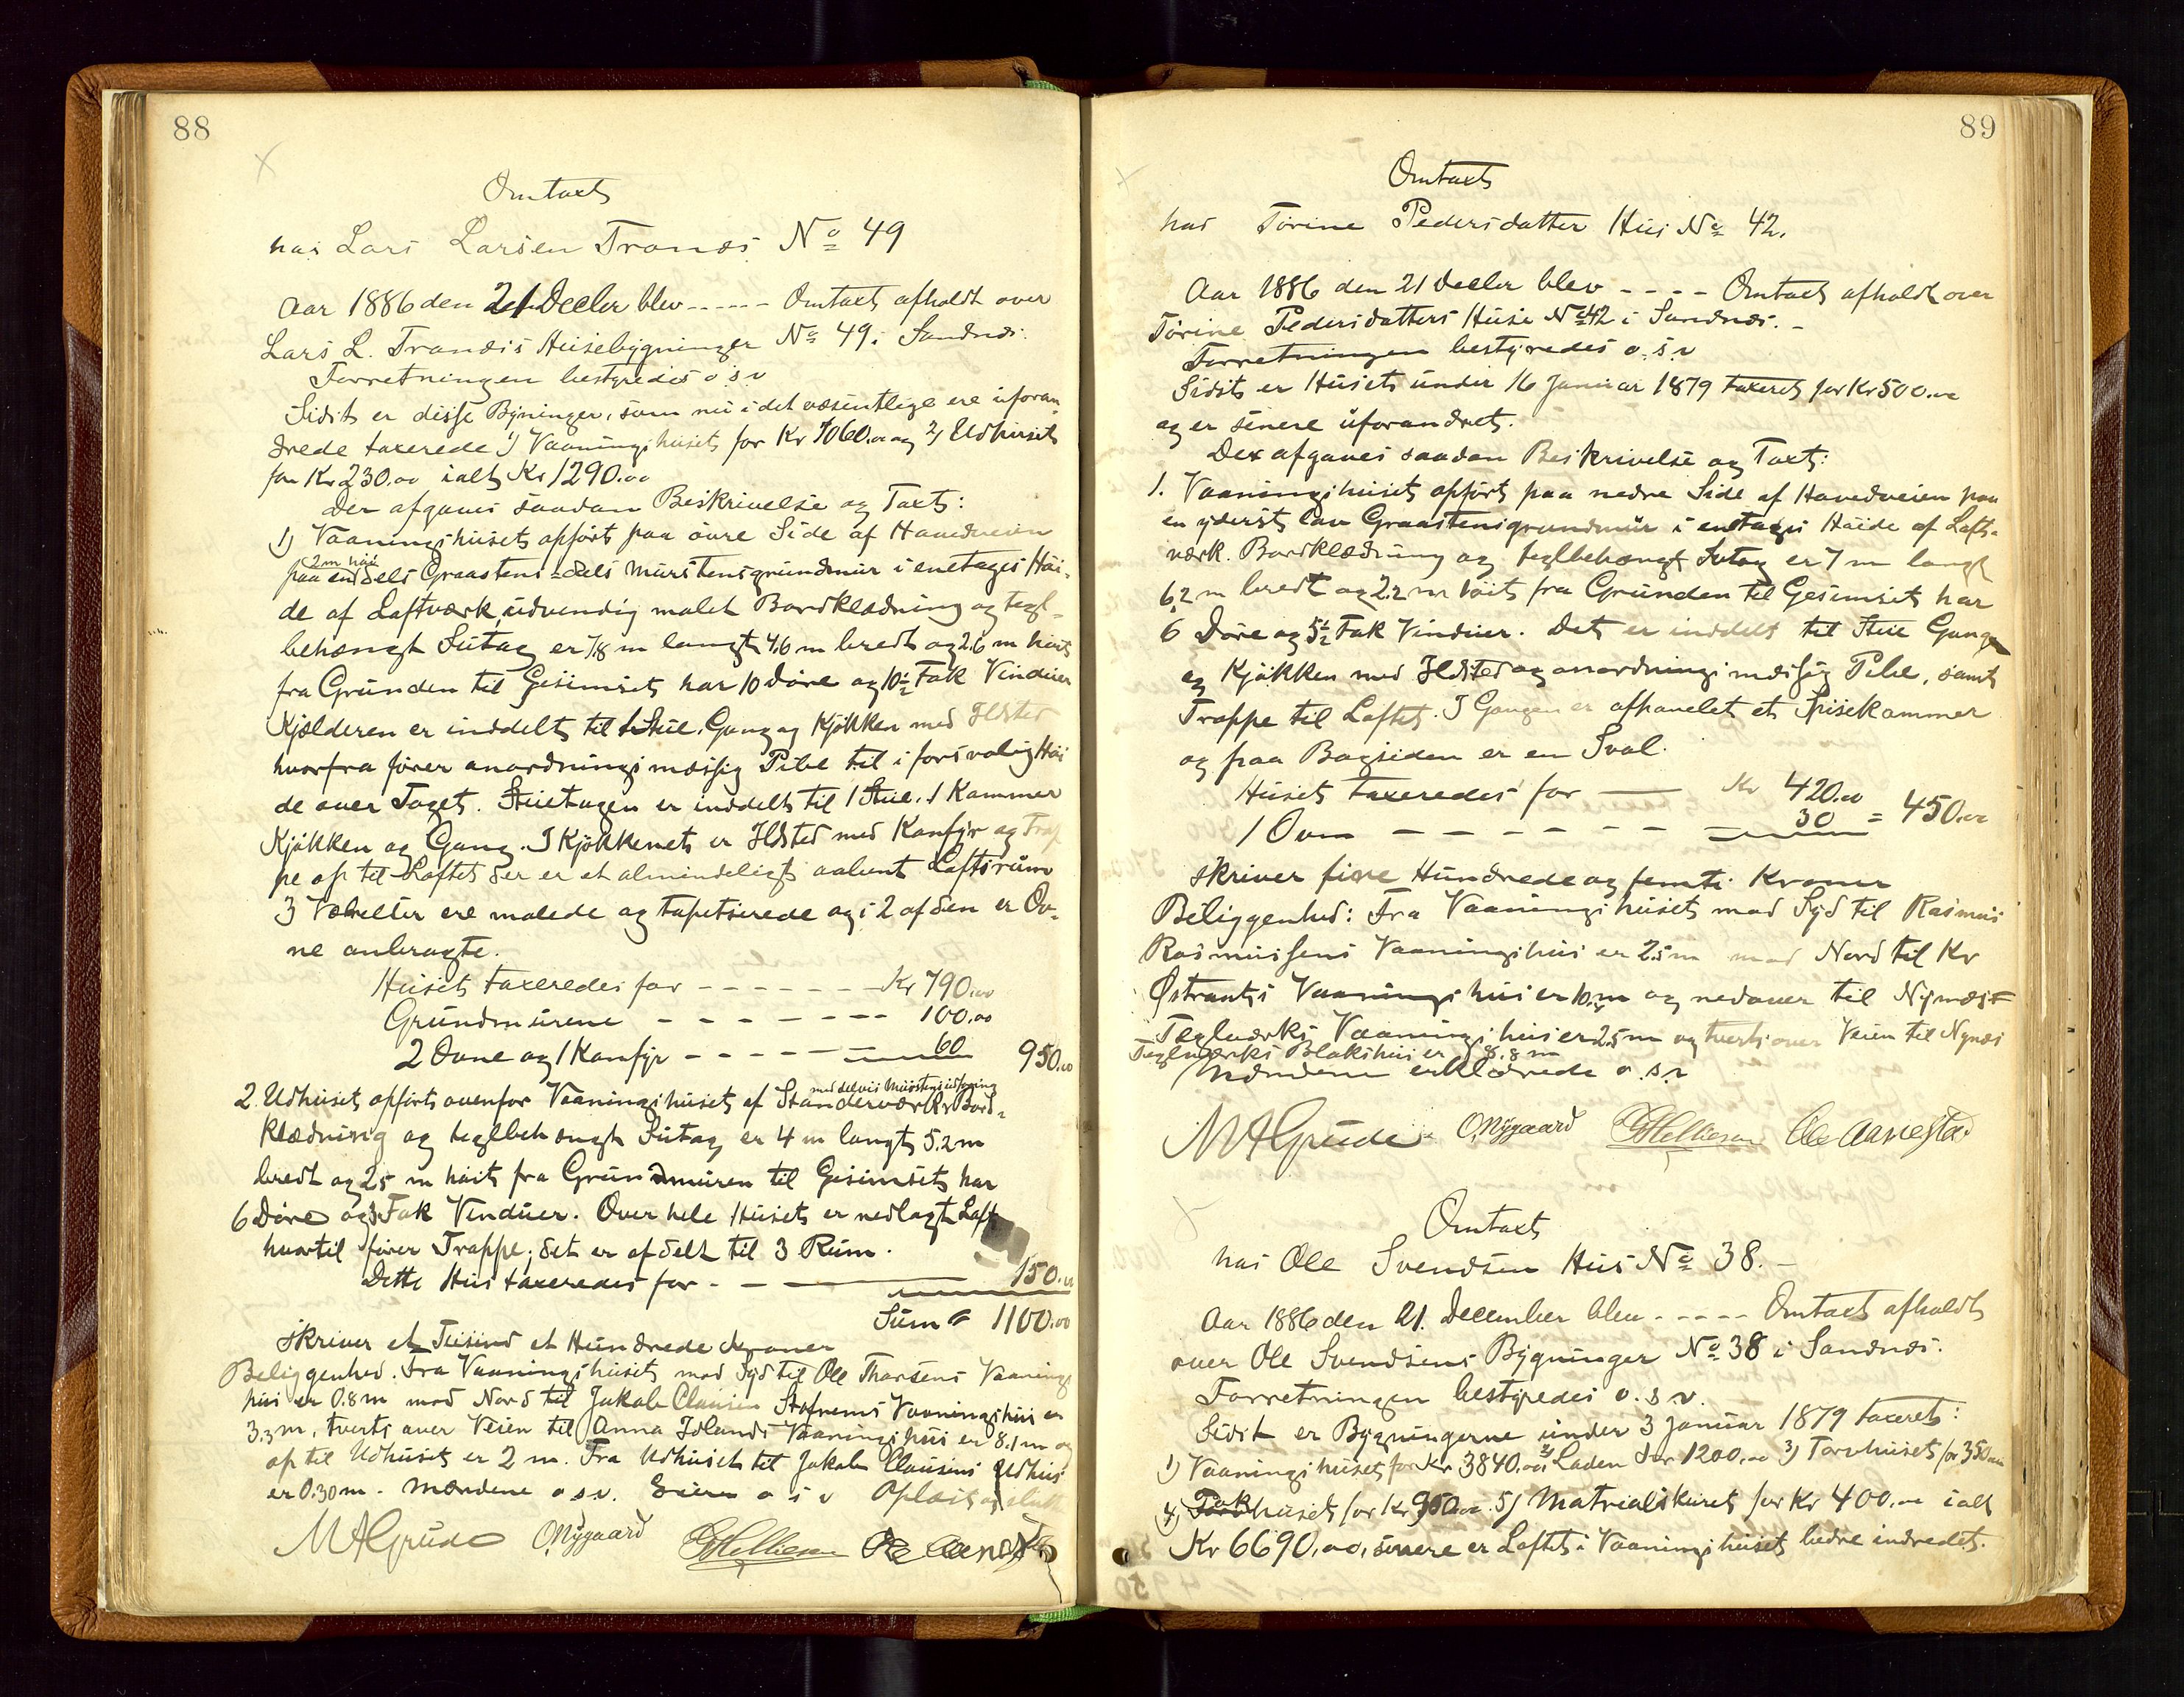 88
Omtaxt
hos Lars Larsen Tranæs No 49
Aar 1886 den 21 Decbr blev ----- Omtaxt afholdt over
Lars L. Tranæs's Husebygninger No 49 i Sandnæs.
Forretningen bestyredes o s v
Sidst er disse Bygninger, som nu i det væsentlige ere uforan-
drede taxerede 1) Vaaningshuset for Kr 1060.00 og 2) Udhuset
for Kr 230.00 ialt Kr 1290.00
Der afgaves saadan Beskrivelse og Taxt:
1) Vaaningshuset opført paa övre Side af Hovedveien
paa en 2 m höi dels Graastens- dels Murstensgrundmur i enetages Höi-
de af Laftværk, udvendig malet Bordklædning og tegl-
behængt Sutag er 7,8 m langt 4,6 m bredt og 2,6 m höit
fra Grunden til Gesimset har 10 Döre og 10½ Fak Vinduer
Kjælderen er inddelt til 1 Stue, Gang og Kjökken med Ildsted
hvorfra fører anordningsmæssig Pibe til i forsvalig Höi
de over Taget. Stuetagen er inddelt til 1 Stue, 1 Kammer
Kjökken og Gang. I Kjökkenet er Ildsted med Komfyr og Trap
pe op til Loftet der er et almindeligt aabent Loftsrum
3 Værelser ere malede og tapetserede og i 2 af dem er Ov-
ne anbragte.
Huset taxeredes for ------- Kr 790.00
Grundmurene ------- 100.00
2 Ovne og 1 Komfyr ------ 60 950.00
2. Udhuset opført ovenfor Vaaningshuset af Standerværk med delvis Murstensudfyring Bord-
klædning og teglbehængt Sutag er 4 m langt 5.2 m
bredt og 2.5 m höit fra Grundmuren til Gesimset har
6 Döre og 3 Fak Vinduer. Over hele Huset er nedlagt Loft
hvortil fører Trappe; det er afdelt til 3 Rum.
Dette Hus taxeredes for - — 150.00
Sum 1100.00
skriver et Tusind et Hundrede Kroner
Beliggenhed. Fra Vaaningshuset mod Syd til Ole Tharsens Vaanings
hus er 0.8 m mod Nord til Jakob Clausen Stafnems Vaaningshus er
3.3 m, tverts over Veien til Anna Idlands Vaaningshus er 8.1 m og
op til Udhuset er 2 m. Fra Udhuset til Jakob Clausens Udhus
er 0.30 m. Mændene o s v. Eieren o s v Oplæst og sluttet
M A Grude O. Nygaard Ole Aanestad
89
Omtaxt
hos Torine Pedersdatter Hus No 42.
Aar 1886 den 21 Decbr blev ---- Omtaxt afholdt over
Torine Pedersdatters Huse No 42 i Sandnæs.-
Forretningen bestyredes o. s. v
Sidst er Huset under 16 Januar 1879 taxeret for Kr 500.00
og er senere uforandret.
Der afgaves saadan Beskrivelse og Taxt:
1. Vaaningshuset opført paa nedre Side af Hovedveien paa
en yderst lav Graastensgrundmur i enetages Höide af Lafte-
værk. Bordklædning og teglbehængt Sutag er 7 m langt
6,2 m bredt og 2.2 m höit fra Grunden til Gesimset har
6 Döre og 5½ Fak Vinduer. Det er inddelt til Stue Gange
og Kjökken med Ildsted og anordningsmæssig Pibe, samt
Trappe til Loftet. I Gangen er afpanelet et Spisekammer
og paa Bagsiden er en Sval.
Huset taxeredes for — Kr 420.00
1 Ovn ------- 30 = 450.00
skriver fire Hundrede og femti Kroner
Beliggenhed: Fra Vaaningshuset mod Syd til Rasmus
Rasmussens Vaaningshus er 2.5 m mod Nord til Kr
Østrantzs Vaaningshus er 10. m og nedover til Nymæs
Teglværks Vaaningshus er 2.5 m og tverts over Veien til Nynæs
Teglværks Blakshus er 8.8 m
Mændene erklærede o. s. v
M A Grude O. Nygaard Ole Aanestad
Omtaxt
hos Ole Svendsen Hus No 38.-
Aar 1886 den 21. December blev ----- Omtaxt afholdt
over Ole Svendsens Bygninger No 38 i Sandnæs.
Forretningen bestyredes o. s. v.
Sidst er Bygningerne under 3 Januar 1879 taxeret:
1) Vaaningshuset for Kr 3840.00 2) Laden for 1200.00 3) Torvhuset for 350.00
4) huset for Kr 950.00. 5) Matrialskuret for Kr 400.00 ialt
Kr 6690.00, senere er Loftet i Vaaningshuset bedre indredet.